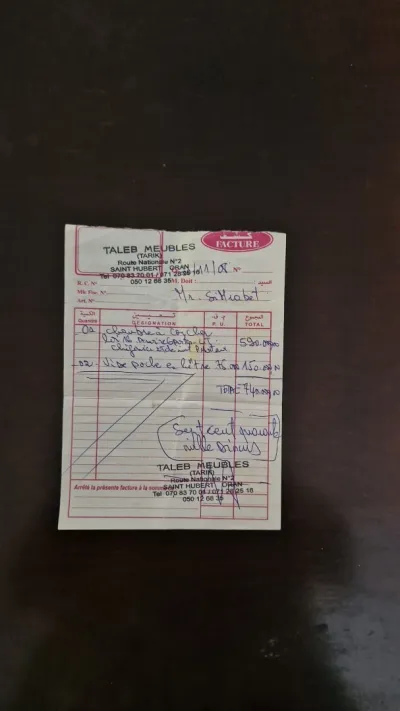 TALEB MEUBLES
(TARIK)
Route Nationale N°2
SAINT HUBERT ORAN
Tel 070 83 70 01 / 071 28 25 16
050 12 68 35
فاتورة
FACTURE
/11/08 N°
R. C. N°
M. Doit :
السيد
Mle Fisc. N°
Art. N°
Mr. Si Mrabet
الكمية Quantité
التعيين DÉSIGNATION
P. U.
المجموع TOTAL
chambre à Coucher
590.000,00
02
75.000 150.000,00
TOTAL 740.000,00
Sept cent quarante
mille Dinars
TALEB MEUBLES
(TARIK)
Route Nationale N°2
SAINT HUBERT ORAN
Arrêté la présente facture à la somme
Tel 070 83 70 01 / 071 28 25 16
050 12 68 35